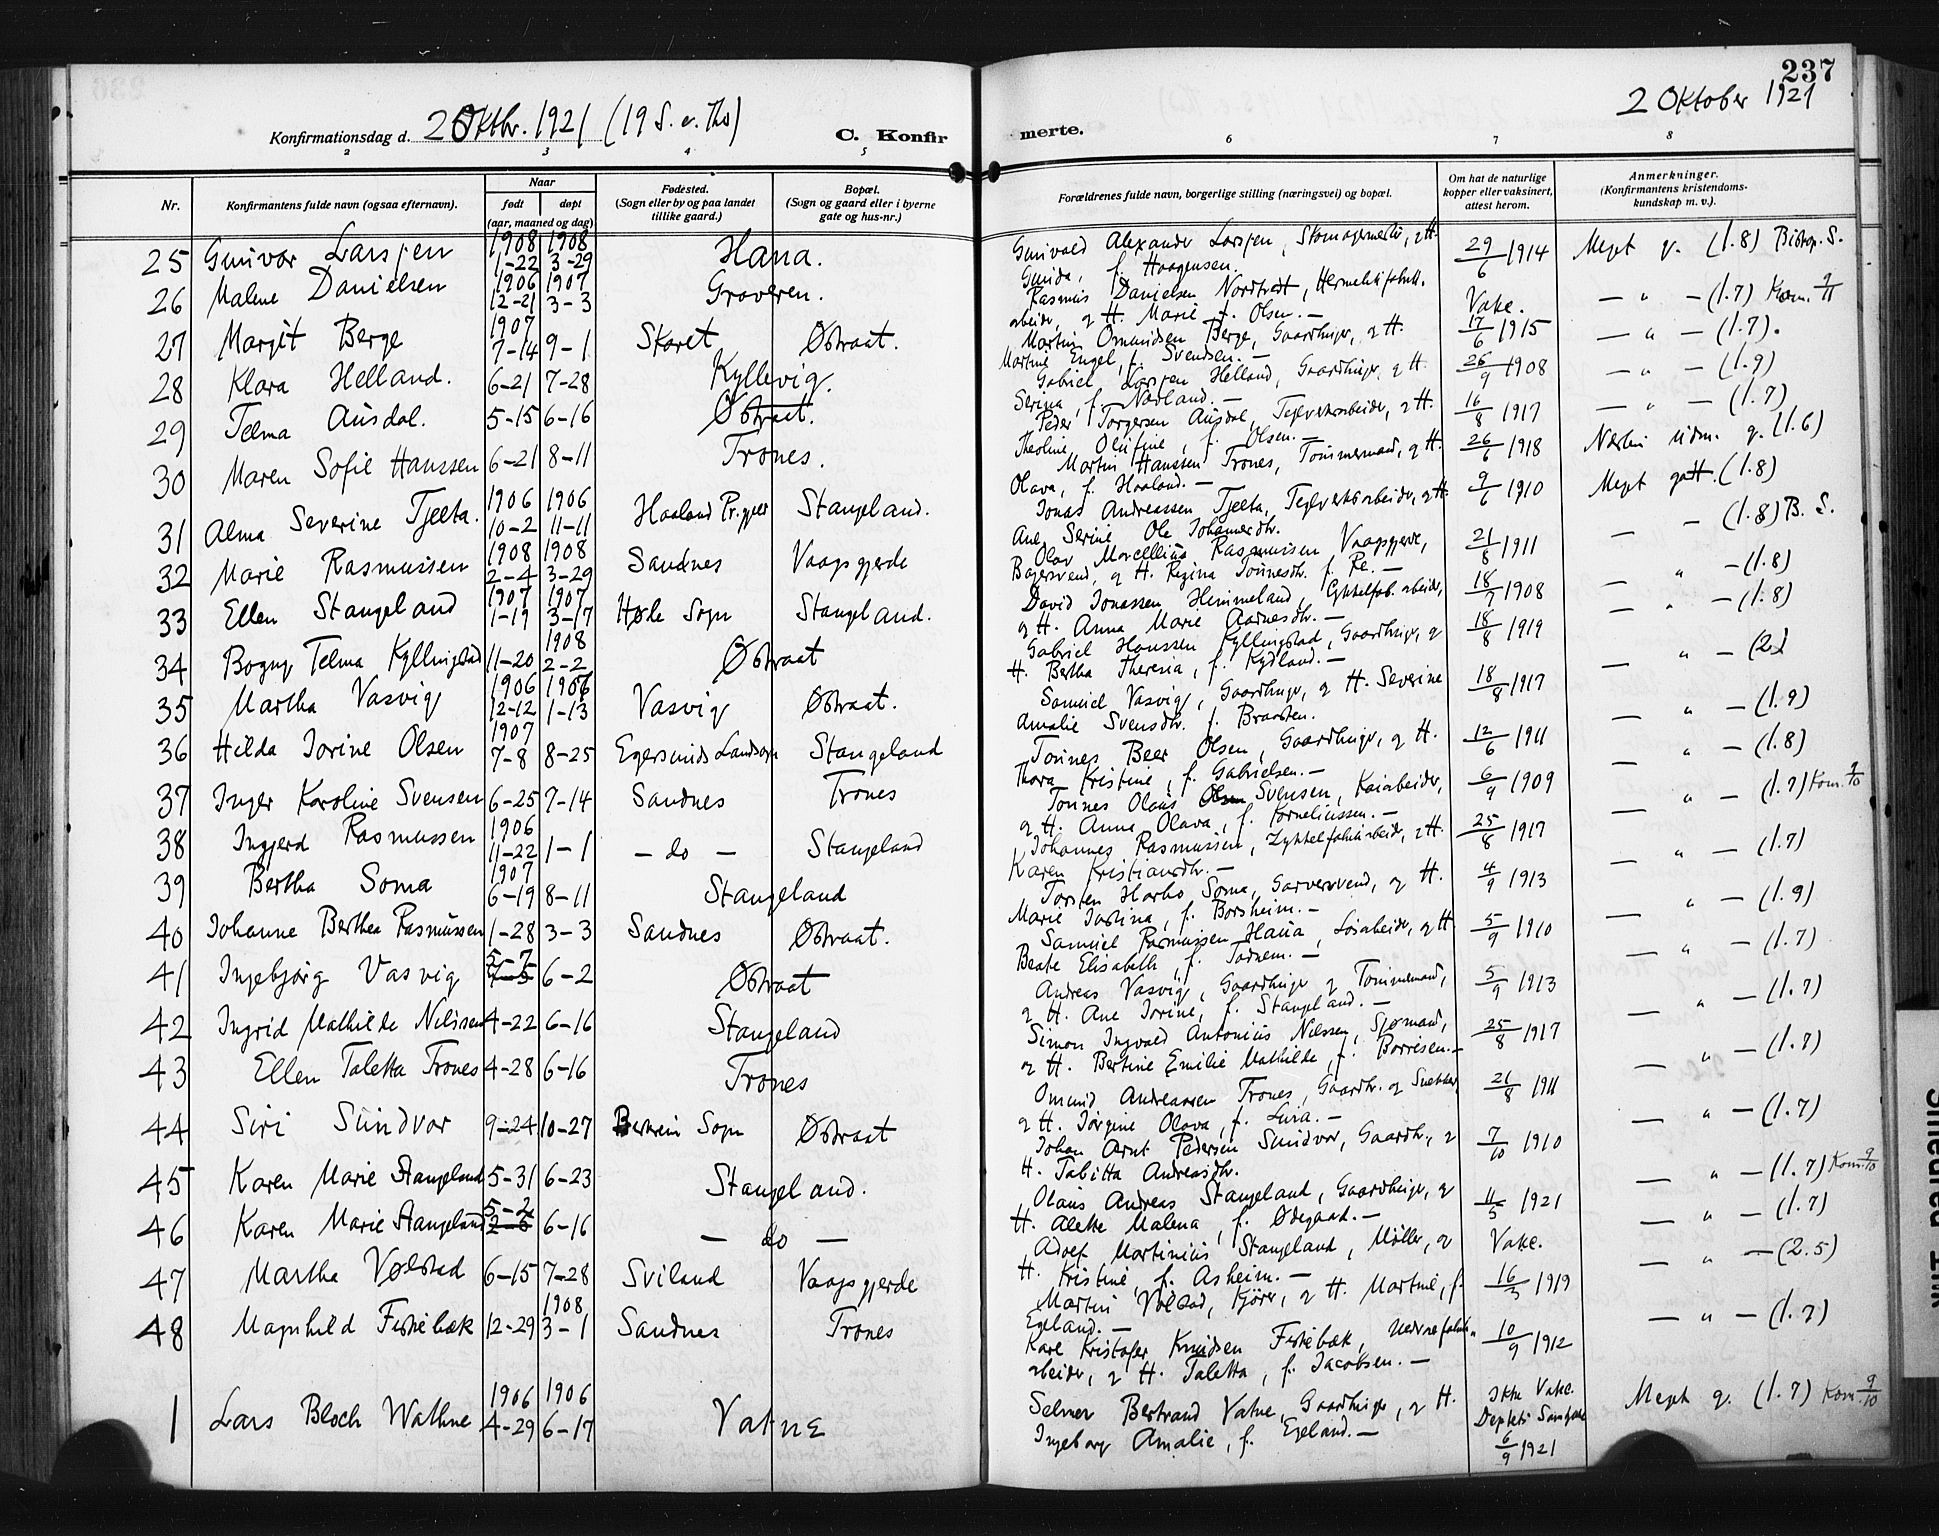 237
2 Oktober 1921
Konfirmationsdag d. 2 Oktbr. 1921 (19 S. e. Ths)
C. Konfirmerte.
2 3 4 5 6 7 8
Nr.
Konfirmantens fulde navn (ogsaa efternavn).
Naar
født døpt
(aar, maaned og dag)
Fødested.
(Sogn eller by og paa landet
tillike gaard.)
Bopæl.
(Sogn og gaard eller i byerne
gate og hus-nr.)
Forældrenes fulde navn, borgerlige stilling (næringsvei) og bopæl.
Om hat de naturlige
kopper eller vaksinert,
attest herom.
Anmerkninger.
(Konfirmantens kristendoms-
kundskap m. v.).
25 Gunvor Larsen 1908 1-22 1908 3-29 Hana. Gunvald Alexander Larsen, Skomagermester, g H. 29/6 1914 Meget g. (1.8) Bisop. S.
Gunda, f. Haagensen.
26 Malene Danielsen 1906 12-21 1907 3-3 Graveren. Rasmus Danielsen Nordtvedt, Hermetikfabrik- Vake. — " — (1.7)
arbeider, g H. Marie f. Olsen. —
27 Margit Berge 1907 7-14 9-1 Skaret Østraat. Martin Omundsen Berge, Gaardbruger, g H. 17/6 1915 — " — (1.7).
Martine Engel, f. Svendsen. —
28 Klara Helland. 6-21 7-28 Kyllevig. Gabriel Larsen Helland, Gaardbruger, g H. 26/9 1908 — " — (1.9)
Serina, f. Nådland. —
29 Telma Ausdal. 5-15 6-16 Østraat. Peder Torgersen Ausdal, Teglverksarbeider, g H. 16/8 1917 — " — (1.7)
Theoline Olufine, f. Olsen. —
30 Maren Sofie Hanssen 6-21 8-11 Trones. Martin Hanssen Trones, Tømmermand, g H. 26/6 1918 g. (1.6)
Olava, f. Haaland. —
31 Alma Severine Tjelta. 1906 10-2 1906 11-11 Haaland Stangeland. Jonas Andreassen Tjelta, Teglverksarbeider, g H. 9/6 1910 Meget godt. (1.8)
Ane Serine Ole Johannesdtr.
32 Marie Rasmussen 1908 2-4 1908 3-29 Sandnes Vaagsgjerde Olav Marcellius Rasmussen Vaagsgjerde, 21/8 1911 — — (1.8) B. S.
Bagersvend, g H. Regina Tønnesdtr. f. Re. —
33 Ellen Stangeland 1907 1-19 1907 3-17 Høle Sogn Stangeland. David Jonassen Himmeland, Cykkelfab. arbeider, 18/9 1908 — " — (1.8)
g H. Anna Marie Aadnesdtr. —
34 Bogny Telma Kyllingstad 11-20 1908 2-2 Østraat Gabriel Hanssen Kyllingstad, Gaardbruger, g 18/8 1919 — " — (1.8)
H. Bertha Theresia, f. Kydland. —
35 Martha Vasvig 1906 12-12 1-13 Vasvig Østraat. Samuel Vasvig, Gaardbruger, g H. Severine 18/8 1917 — " — (2)
Amalie Svensdtr. f. Braasten.
36 Hilda Jorine Olsen 1907 7-8 8-25 Egersunds Landsogn Stangeland Tønnes Beer Olsen, Gaardbruger, g H. 12/6 1911 — " — (1.9)
Thora Kristine, f. Gabrielsen. —
37 Inger Karoline Svensen 6-25 7-14 Sandnes Trones Tønnes Olaus Olsen Svensen, Kaiarbeider, 6/9 1909 — " — (1.8)
g H. Anna Olava, f. Korneliussen. —
38 Ingjerd Rasmussen 1906 11-22 1-1 — do — Stangeland Johannes Rasmussen, g H. 25/8 1917 — " — (1.7) Kom. 9/10
Karen Kristiansdtr. —
39 Bertha Soma 1907 6-19 8-11 Stangeland Torsten Harbo Soma, Garversvend, g H. 4/9 1913 — " — (1.7)
Marie Justina, f. Borsheim. —
40 Johanne Berthea Rasmussen 1-28 3-3 Sandnes Østraat. Samuel Rasmussen Hana, Løsarbeider, g H. 5/9 1910 — " — (1.9)
Beate Elisabeth, f. Tarnem. —
41 Ingebjørg Vasvig 5-7 6-2 Østraat Andreas Vasvig, Gaardbruger g Tømmermand, 5/9 1913 — " — (1.7)
g H. Ane Jorine, f. Stangeland. —
42 Ingrid Mathilde Nilssen 4-22 6-16 Stangeland Simon Ingvald Antonius Nilssen, Sjømand, 25/8 1917 — " — (1.7)
g H. Bertine Emilie Mathilde, f. Børresen. —
43 Ellen Taletta Trones 4-28 6-16 Trones Omund Andreassen Trones, Gaardbr. og Snekker, 21/8 1911 — " — (1.7)
g H. Jørgine Olava, f. Lura. —
44 Siri Sundvor 9-24 10-27 Bertheim Sogn Østraat Johan Arnt Pedersen Sundvor, Gaardbr., g 7/10 1910 — " — (1.7)
H. Tabitta Andreasdtr.
45 Karen Marie Stangeland 5-31 6-23 Stangeland. Olaus Andreas Stangeland, Gaardbruger, g 4/5 1921 — " — (1.7) Kom. 9/10
H. Alette Malena, f. Ødegaard. —
46 Karen Marie Stangeland 5-2 6-16 — do — Adolf Martinius Stangeland, Møller, g Vake. — " — (1.7)
H. Kristine, f. Asheim. —
47 Martha Vølstad 6-15 7-28 Sviland Vaagsgjerde Martin Vølstad, Kjører, g H. Martine, f. 16/3 1919 — " — (2.5)
Egeland. —
48 Magnhild Fiskebæk 12-29 1908 3-1 Sandnes Trones Karl Kristofer Knudsen Fiskebæk, 10/9 1912 — " — (1.7)
arbeider, g H. Taletta, f. Jacobsen. —
1 Lars Bloch Wathne 1906 4-29 1906 6-17 Vatne Selmer Bertrand Vatne, Gaardbruger, g H. Ikke Vake. Meget g. (1.7) Kom. 9/10
Ingeborg Amalie, f. Egeland. — 6/9 1921